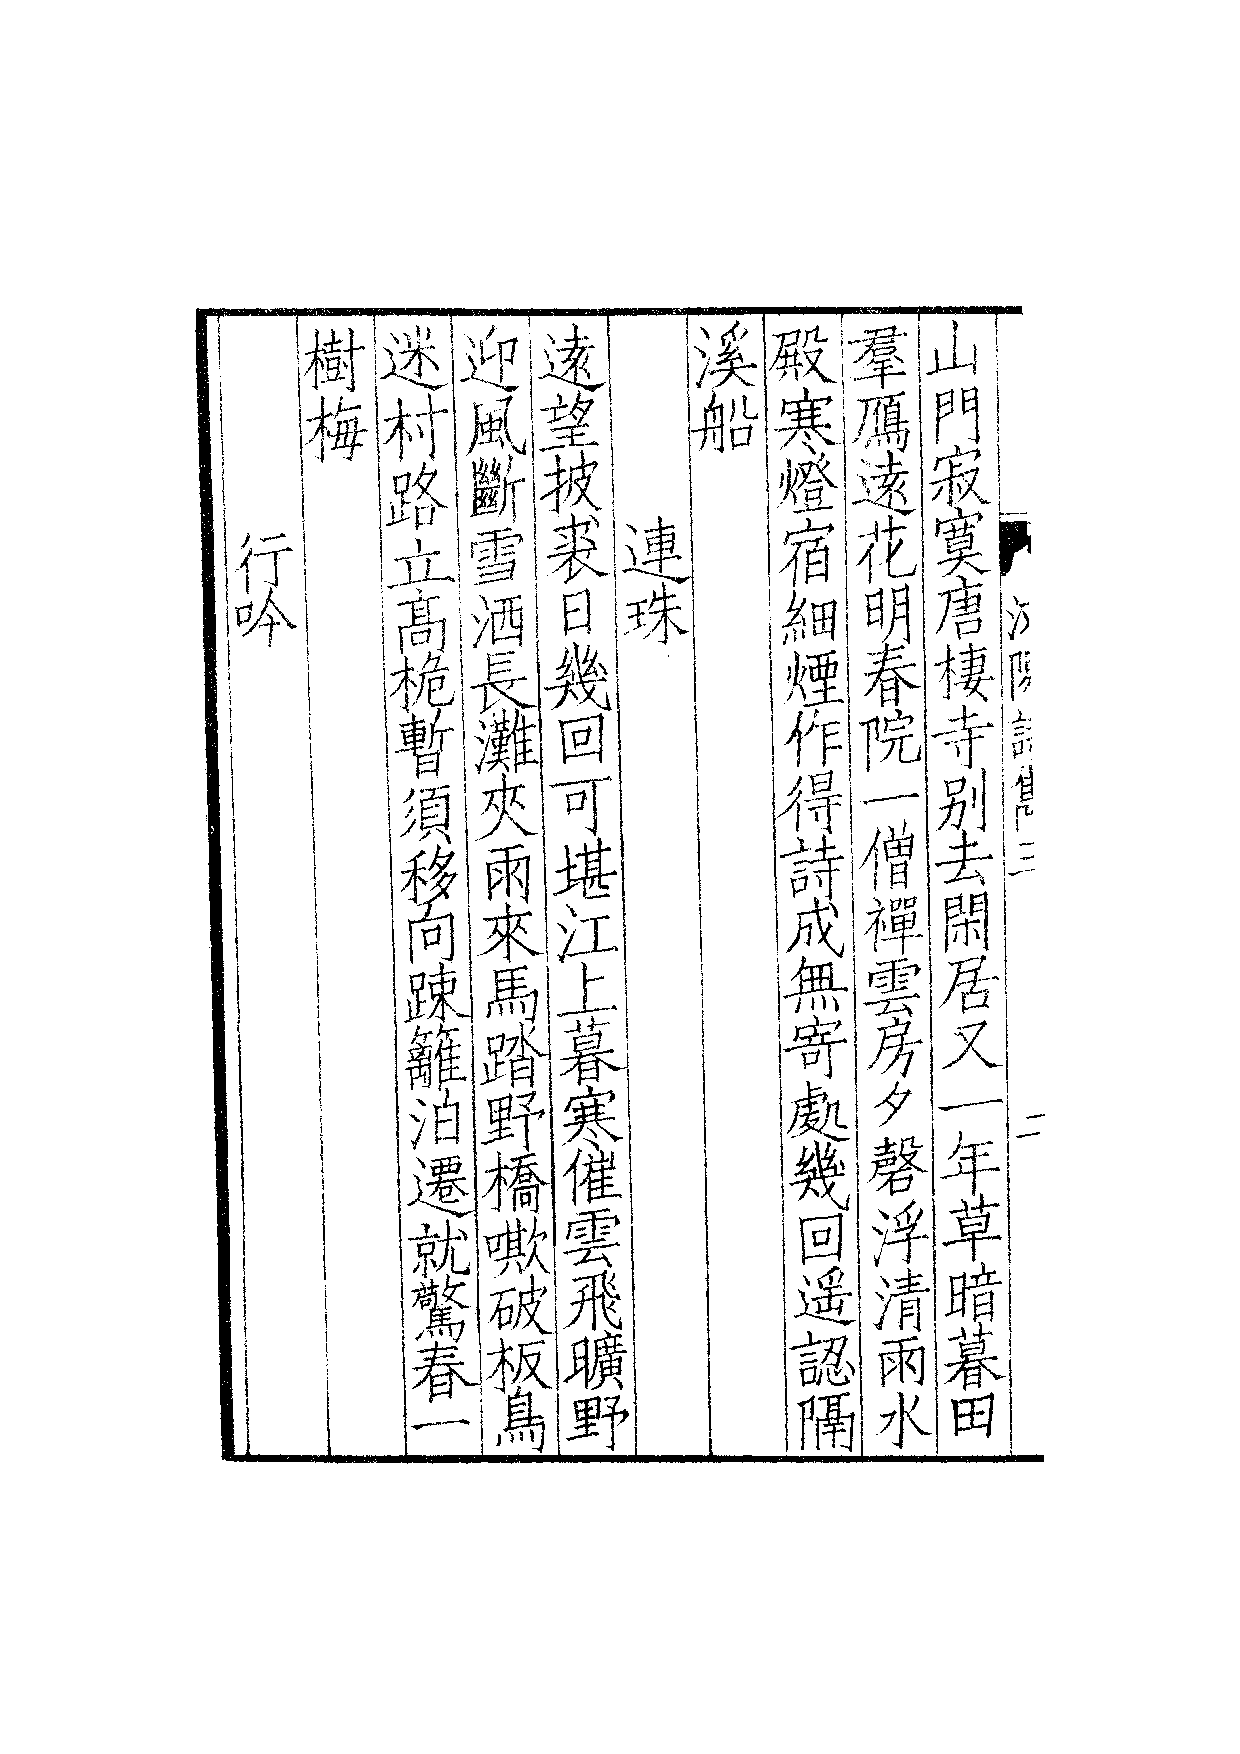 山門寂寞唐棲寺别去閑居又一年草暗暮田
羣鴈逺花明春院一僧禪雲房夕磬浮清雨水
殿寒燈宿細煙作得詩成無寄處幾回遥認隔
溪船
連珠
逺望披裘日幾回可堪江上暮寒催雲飛曠野
迎風斷雪洒長灘夾雨來馬踏野橋嘶破板鳥
迷村路立髙桅暫須移向踈籬泊遷就驚春一
樹梅
行吟